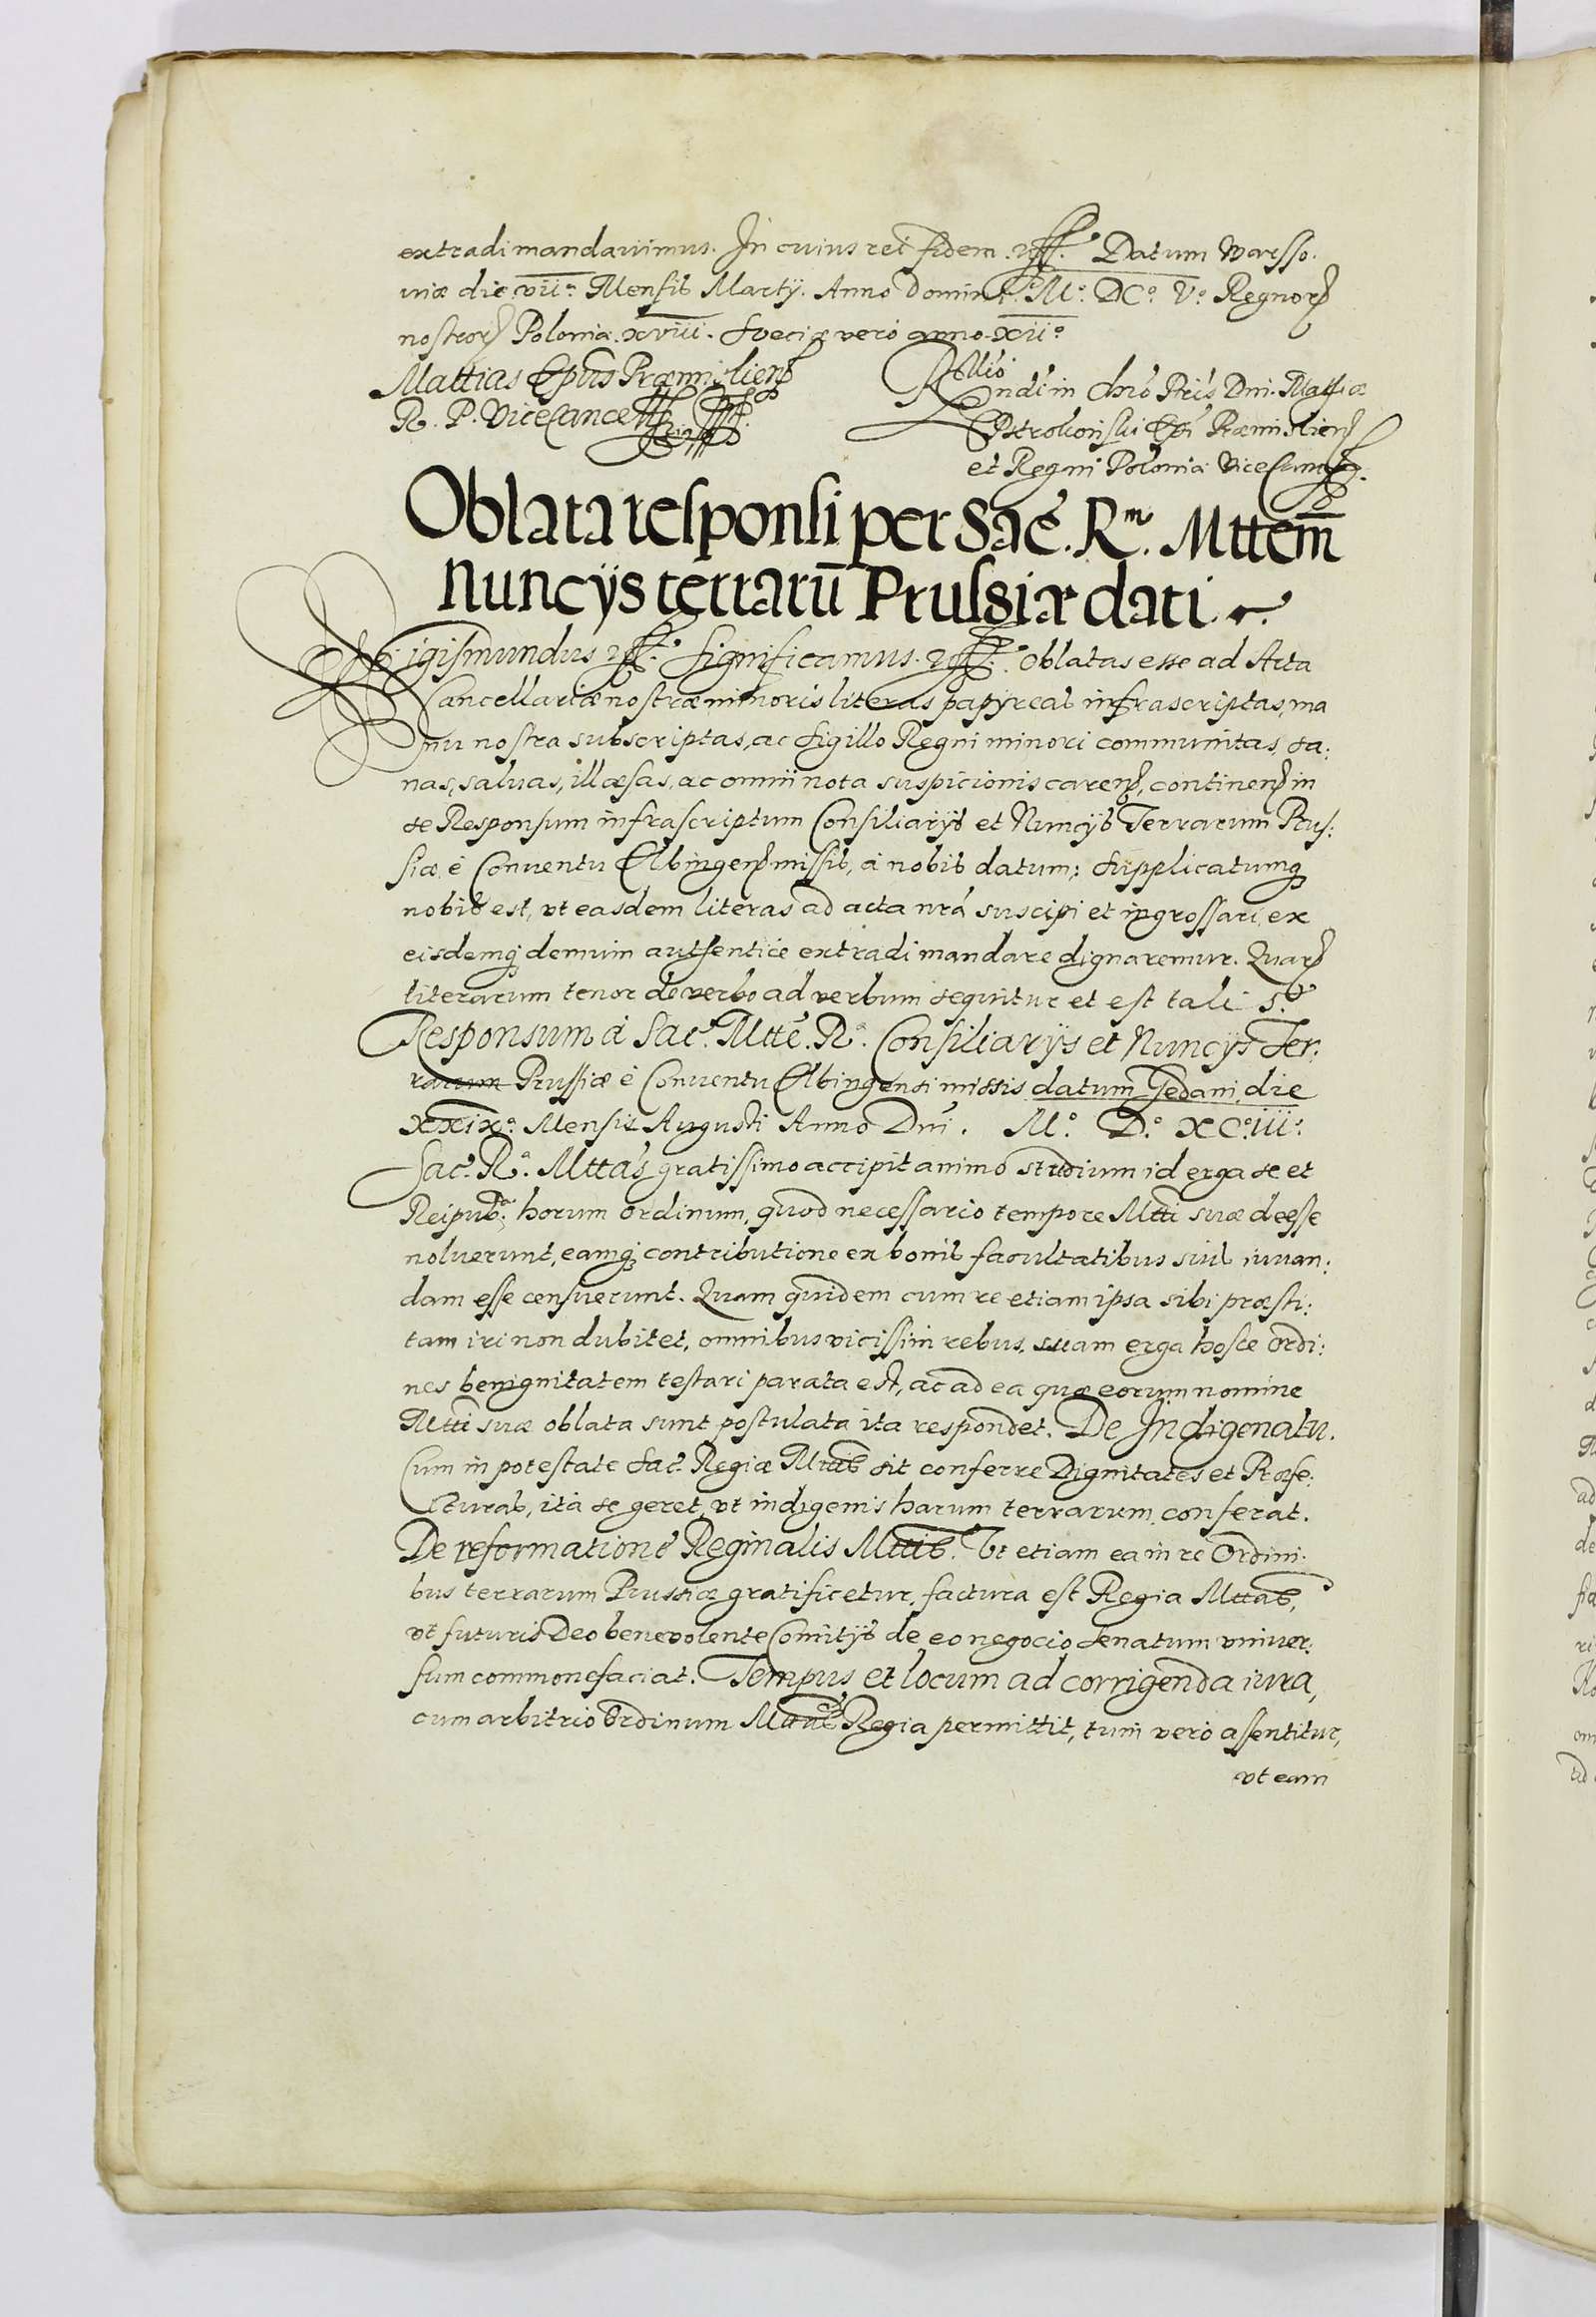 extradi mandauimus. In cuius rei fidem. Datum Warsso.
uiæ die vii.o Mensis Martÿ. Anno Domini. M.o DC.o V.o Regnor
nostror Poloniæ. xviii. Sueciæ verò anno. xii.o
Mattias Epus Præmislien
R. P. ViceCancell
Rllio
ndi in Chro Pris Dni. Mathiæ
Pstrokonski Epi Præmislien
et Regni Poloniæ ViceCancell.
Oblata responsi per Sac. R.m Mttem
Nuncÿs terrarū Prussiæ dati.
Sigismundus. Significamus. Oblatas esse ad Acta
Cancellariæ nostræ minoris literas papÿreas infrascriptas, ma
nu nostra subscriptas, ac sigillo Regni minori communitas, sa:
nas, saluas, illæsas, ac omni nota suspicionis caren, continen in
se Responsum infrascriptum Consiliarÿs et Nuncÿs Terrarum Prus:
siæ è Conuentu Elbingen missis, à nobis datum; Supplicatumq
nobis est, vt easdem literas ad acta nrâ suscipi et ingrossari, ex
eisdemq demum authenticè extradi mandare dignaremur. Quar
literarum tenor de verbo ad verbum sequitur et est talis.
Responsum à Sac. Mtte. R.a Consiliarÿs et Nuncÿs Ter:
rarum Prussiæ è Conuentu Elbingensi missis datum Gedani, die
xxix.o Mensis Augusti Anno Dni. M.o D.o XC.o iii.o
Sac. R.a Mttas gratissimo accipit animo studium id erga se et
Reipub: horum ordinum, quod necessario tempore Mtti suæ deesse
noluerunt, eamq contributione ex bonis facultatibus suis iuuan:
dam esse censuerunt. Quam quidem cum re etiam ipsa sibi præsti:
tam iri non dubitet, omnibus vicissim rebus, suam erga hosce ordi:
nes benignitatem testari parata est, ac ad ea quæ eorum nomine
Mtti suæ oblata sunt postulata ita respondet. De Indigenatu.
Cum in potestate Sac. Regiæ Mttis sit conferre Dignitates et Præfe:
cturas, ità se geret, vt indigenis harum terrarum conferat.
De reformatione Reginalis Mttis. Vt etiam ea in re Ordini:
bus terrarum Prussiæ gratificetur, factura est Regia Mttas,
vt futuris Deo beneuolente Comitÿs de eo negocio Senatum vniuer:
sum commonefaciat. Tempus et locum ad corrigenda iura,
cum arbitrio Ordinum Mttas Regia permittit, tum verò assentitur,
vt eam